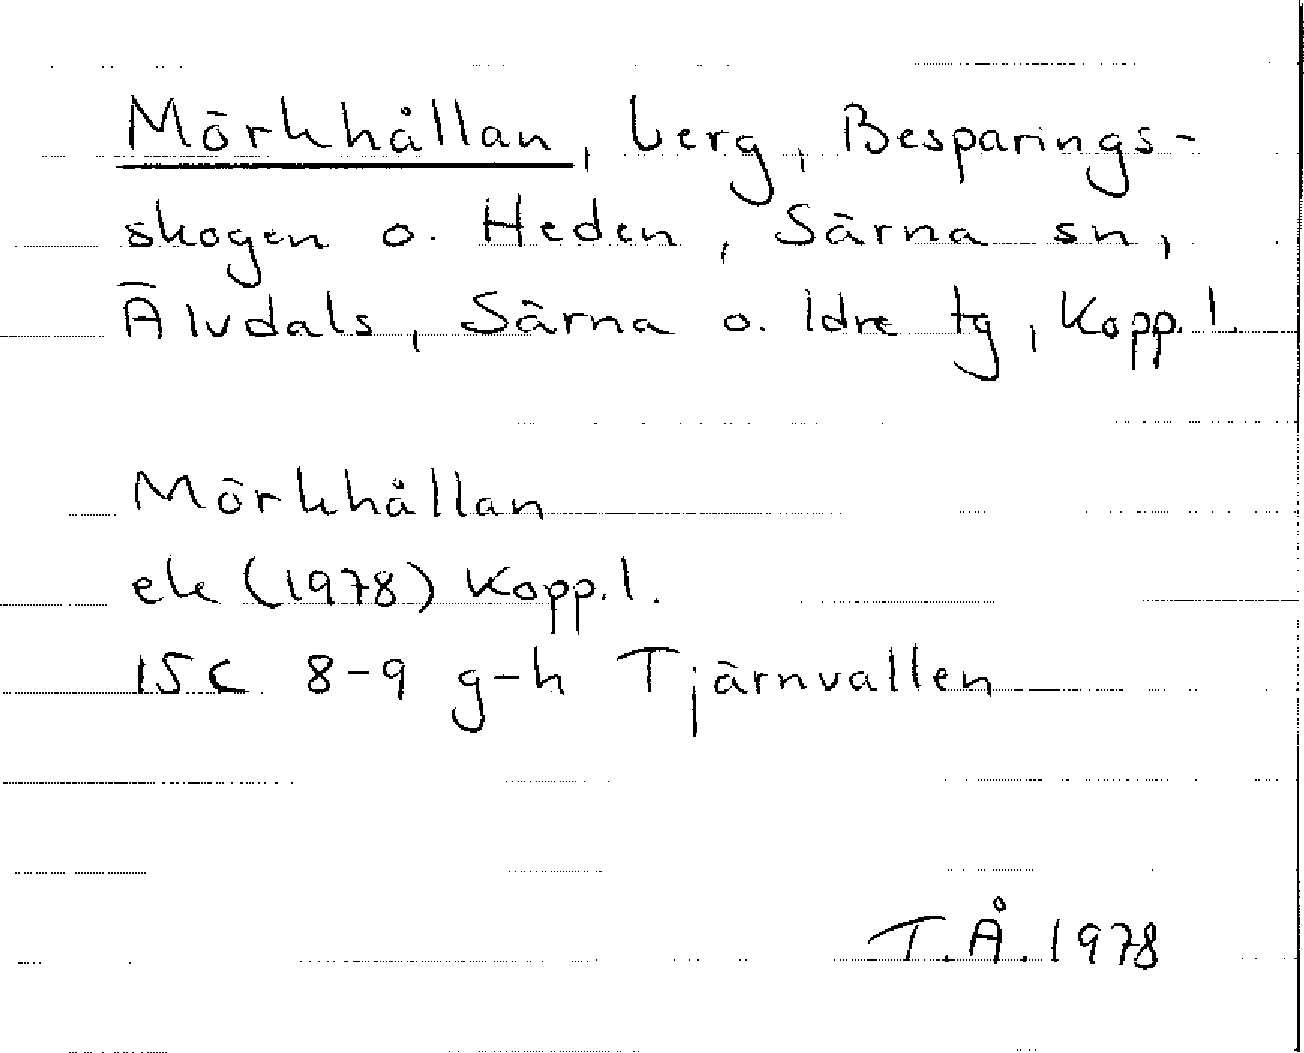 Mörkhållan, berg, Besparings-
skogen o. Heden, Särna sn,
Älvdals, Särna o. Idre tg, Kopp. l.
Mörkhållan
ek (1978) Kopp. l.
15C 8-9 g-h Tjärnvallen
T.Å. 1978